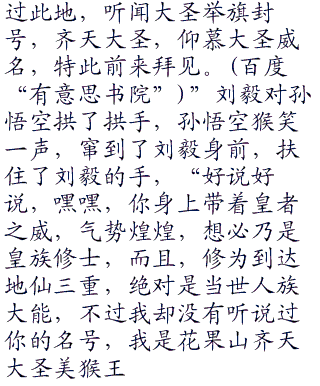 过此地，听闻大圣举旗封
号，齐天大圣，仰慕大圣威
名，特此前来拜见。(百度
“有意思书院”)”刘毅对孙
悟空拱了拱手，孙悟空猴笑
一声，窜到了刘毅身前，扶
住了刘毅的手，“好说好
说，嘿嘿，你身上带着皇者
之威，气势煌煌，想必乃是
皇族修士，而且，修为到达
地仙三重，绝对是当世人族
大能，不过我却没有听说过
你的名号，我是花果山齐天
大圣美猴王